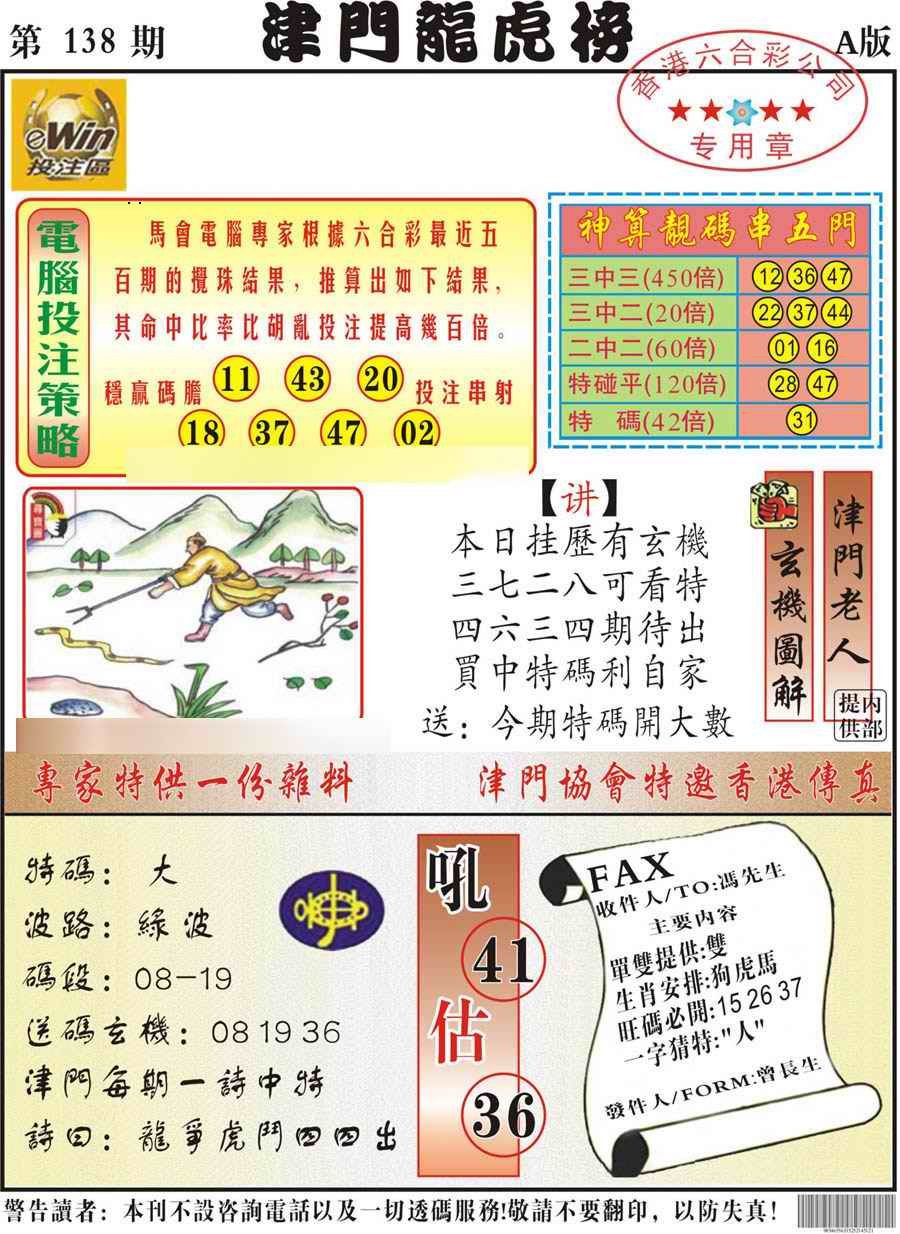 第 138 期
津門龍虎榜
A版
香港六合彩公司
专用章
eWin
投注區
電腦投注策略
馬會電腦專家根據六合彩最近五
百期的攪珠結果，推算出如下結果，
其命中比率比胡亂投注提高幾百倍。
穩贏碼膽 11 43 20 投注串射
18 37 47 02
神算靚碼串五門
三中三(450倍) 12 36 47
三中二(20倍) 22 37 44
二中二(60倍) 01 16
特碰平(120倍) 28 47
特 碼(42倍) 31
尋寶圖
【讲】
本日挂歷有玄機
三七二八可看特
四六三四期待出
買中特碼利自家
送：今期特碼開大數
玄機圖解
津門老人
提供
内部
專家特供一份雜料
津門協會特邀香港傳真
特碼：大
波路：綠波
碼段：08-19
送碼玄機：08 19 36
津門每期一詩中特
詩曰：龍爭虎鬥四四出
吼
41
估
36
FAX
收件人/TO:馮先生
主要内容
單雙提供:雙
生肖安排:狗虎馬
旺碼必開:15 26 37
一字猜特:"人"
發件人/FORM:曾長生
警告讀者：本刊不設咨詢電話以及一切透碼服務!敬請不要翻印，以防失真!